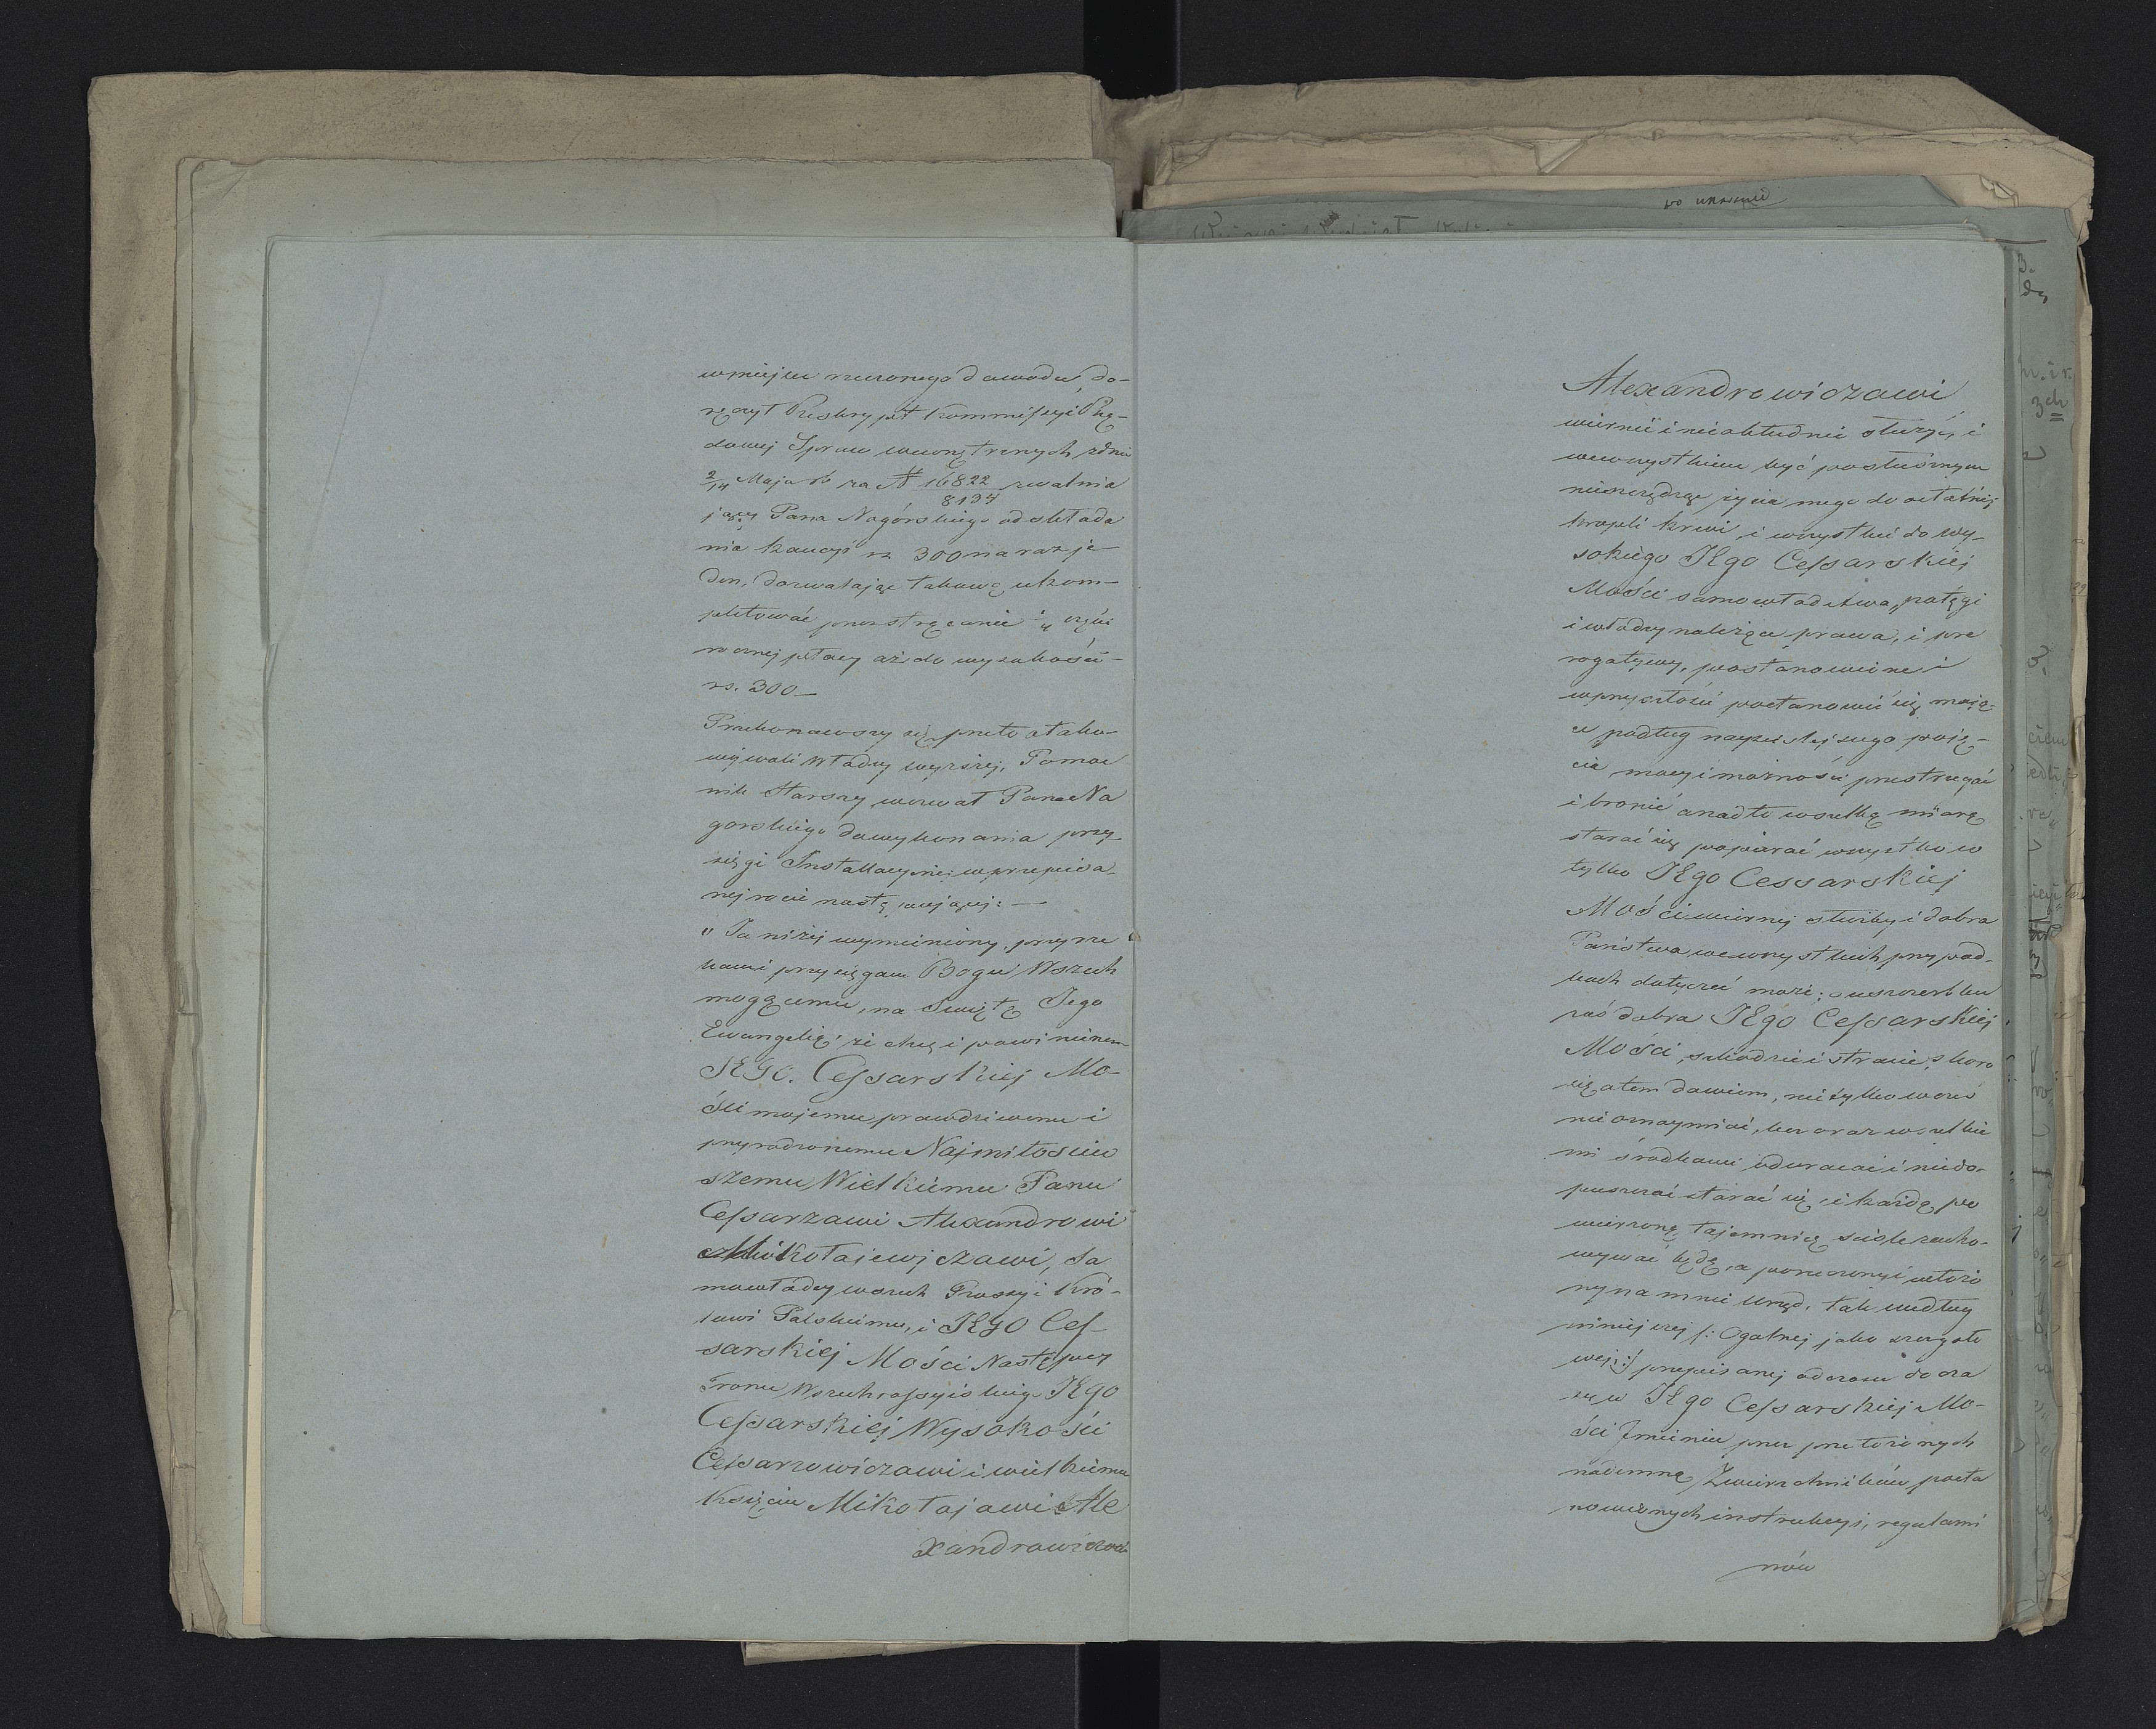 w miejsce rzeczonego dowodu, do-
ręczył Reskrypt Kommissyi Rzą-
dowej Spraw wewnętrznych z dnia
2/14 Maja rb za N 16822/8134 zwalnia
jący Pana Nagórskiego od składa
nia kaucyi rs. 300 na raz je
den, dozwalając takową ukom-
pletować przez strącanie ¼ części
rocznej płacy aż do wysokości
rs. 300
Przekonawszy się przeto o tako-
wéj woli Władzy wyższej, Pomoc
nik Starszy wezwał Pana Na
gorskiego do wykonania przy-
sięgi Installacyjnej w przepisa-
nej rocie następującej: —
"Ja niżej wymieniony, przyrze
kam i przysięgam Bogu Wszech
mogącemu, na Swiętą Jego
Ewangelię że chcę i powinienem
JEGO. Cessarskiej Mo-
ści mojemu prawdziwemu i
przyrodzonemu Najmiłosciw
szemu Wielkiemu Panu
Cessarzowi Alexandrowi
Mikołajewiczowi, Sa
mowładzcy wszech Rossyi i Kró-
lowi Polskiemu, i JEGO Ces-
sarskiej Mości Następcy
Tronu Wszechrossyiskiego JEgo
Cessarskiej Wysokości
Cessarzewiczowi i wielkiemu
Księciu Mikołajowi Ale
xandrowiczowi
Alexandrowiczowi
wiernie i nieobłudnie służyć, i
we wszystkiem być posłusznym
nieszczędząc życia mego do ostatniej
kropli krwi, i wszystkie do Wy-
sokiego JEgo Cessarskiej
Mości samowładztwa, potęgi
i władzy należące prawa, i pre
rogatywy, postanowione i
w przyszłości postanowić się mają-
ce podług najściślejszego poję-
cia mocy i możności przestrzegać
i bronić a nadto wszelką miarą
starać się popierać wszystko co
tylko JEgo Cessarskiej
Mości wiernej służby i dobra
Państwa we wszystkich przypad-
kach dotyczeć może; o uszczerbku
zaś dobra JEgo Cessarskiej
Mości, szkodzie i stracie, skoro
się o tem dowiem, nie tylko wcześ
nie oznaymiać, lecz oraz wszelkie
mi środkami odwracać i niedo-
puszczać starać się, i każdą po
wierzoną tajemnicę ściśle zacho-
wywać będę, a poruczony i włożo
ny na mnie Urząd, tak według
niniejszej /: Ogólnej jako szczegóło
wej :/ przepisanej od czasu do cza
su w JEgo Cessarskiej Mo-
ści Imieniu przez przełożonych
nademną Zwierzchników posta
nowionych instrukcyi, regulami
nów